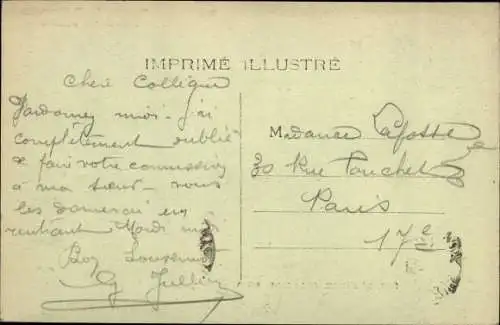 IMPRIMÉ ILLUSTRÉ
Chère Collègue
Pardonnez moi. j'ai
complètement oublié
de faire votre commission
à ma sœur - vous
les donnerai en
rentrant Mardi
Bon Souvenir
Madame Lafosse
30 Rue Pouchet
Paris
17e